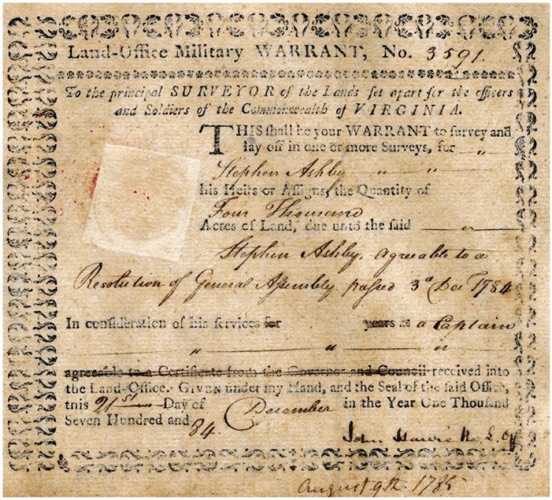 Land-Office Military WARRANT, No. 3591.
To the principal SURVEYOR of the Lands set apart for the officers
and Soldiers of the Commonwealth of VIRGINIA.
THIS shall be your WARRANT to survey and
lay off in one or more Surveys, for "
Stephen Ashby " " "
his Heirs or Assigns, the Quantity of
Four Thousand
Acres of Land, due unto the said "
Stephen Ashby, agreeable to a
Resolution of General Assembly passed 3d Decr 1784
In consideration of his services for years as a Captain
" " "
agreeable to a Certificate from the Governor and Council received into
the Land-Office. GIVEN under my Hand, and the Seal of the said Office,
this 21st Day of December in the Year One Thousand
Seven Hundred and 84.
John Harvie R. L. Off
August 9th 1785